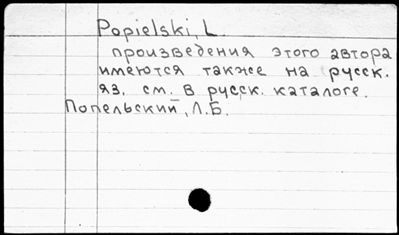 Popielski, L.
произведения этого автора
имеются также на русск.
яз. см. в русск. каталоге.
Попельский, Л.Б.